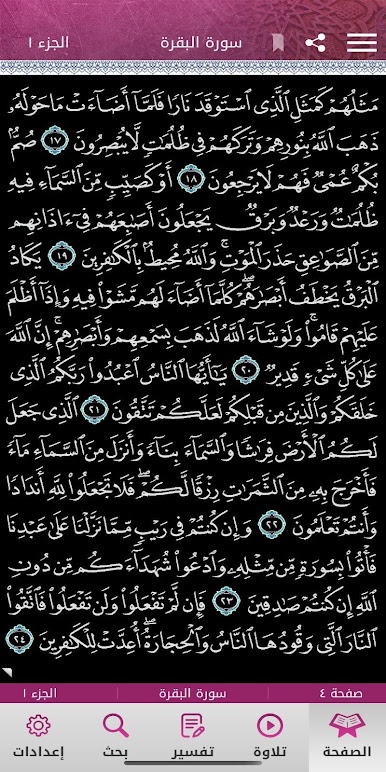 الجزء ١ سورة البقرة
مَثَلُهُمْ كَمَثَلِ ٱلَّذِى ٱسْتَوْقَدَ نَارًا فَلَمَّآ أَضَآءَتْ مَا حَوْلَهُۥ
ذَهَبَ ٱللَّهُ بِنُورِهِمْ وَتَرَكَهُمْ فِى ظُلُمَٰتٍ لَّا يُبْصِرُونَ ١٧ صُمٌّۢ
بُكْمٌ عُمْىٌ فَهُمْ لَا يَرْجِعُونَ ١٨ أَوْ كَصَيِّبٍ مِّنَ ٱلسَّمَآءِ فِيهِ
ظُلُمَٰتٌ وَرَعْدٌ وَبَرْقٌ يَجْعَلُونَ أَصَٰبِعَهُمْ فِىٓ ءَاذَانِهِم
مِّنَ ٱلصَّوَٰعِقِ حَذَرَ ٱلْمَوْتِ ۚ وَٱللَّهُ مُحِيطٌۢ بِٱلْكَٰفِرِينَ ١٩ يَكَادُ
ٱلْبَرْقُ يَخْطَفُ أَبْصَٰرَهُمْ ۖ كُلَّمَآ أَضَآءَ لَهُم مَّشَوْا۟ فِيهِ وَإِذَآ أَظْلَمَ
عَلَيْهِمْ قَامُوا۟ ۚ وَلَوْ شَآءَ ٱللَّهُ لَذَهَبَ بِسَمْعِهِمْ وَأَبْصَٰرِهِمْ ۚ إِنَّ ٱللَّهَ
عَلَىٰ كُلِّ شَىْءٍ قَدِيرٌ ٢٠ يَٰٓأَيُّهَا ٱلنَّاسُ ٱعْبُدُوا۟ رَبَّكُمُ ٱلَّذِى
خَلَقَكُمْ وَٱلَّذِينَ مِن قَبْلِكُمْ لَعَلَّكُمْ تَتَّقُونَ ٢١ ٱلَّذِى جَعَلَ
لَكُمُ ٱلْأَرْضَ فِرَٰشًا وَٱلسَّمَآءَ بِنَآءً وَأَنزَلَ مِنَ ٱلسَّمَآءِ مَآءً
فَأَخْرَجَ بِهِۦ مِنَ ٱلثَّمَرَٰتِ رِزْقًا لَّكُمْ ۖ فَلَا تَجْعَلُوا۟ لِلَّهِ أَندَادًا
وَأَنتُمْ تَعْلَمُونَ ٢٢ وَإِن كُنتُمْ فِى رَيْبٍ مِّمَّا نَزَّلْنَا عَلَىٰ عَبْدِنَا
فَأْتُوا۟ بِسُورَةٍ مِّن مِّثْلِهِۦ وَٱدْعُوا۟ شُهَدَآءَكُم مِّن دُونِ
ٱللَّهِ إِن كُنتُمْ صَٰدِقِينَ ٢٣ فَإِن لَّمْ تَفْعَلُوا۟ وَلَن تَفْعَلُوا۟ فَٱتَّقُوا۟
ٱلنَّارَ ٱلَّتِى وَقُودُهَا ٱلنَّاسُ وَٱلْحِجَارَةُ ۖ أُعِدَّتْ لِلْكَٰفِرِينَ ٢٤
صفحة ٤ سورة البقرة الجزء ١
الصفحة تلاوة تفسير بحث إعدادات